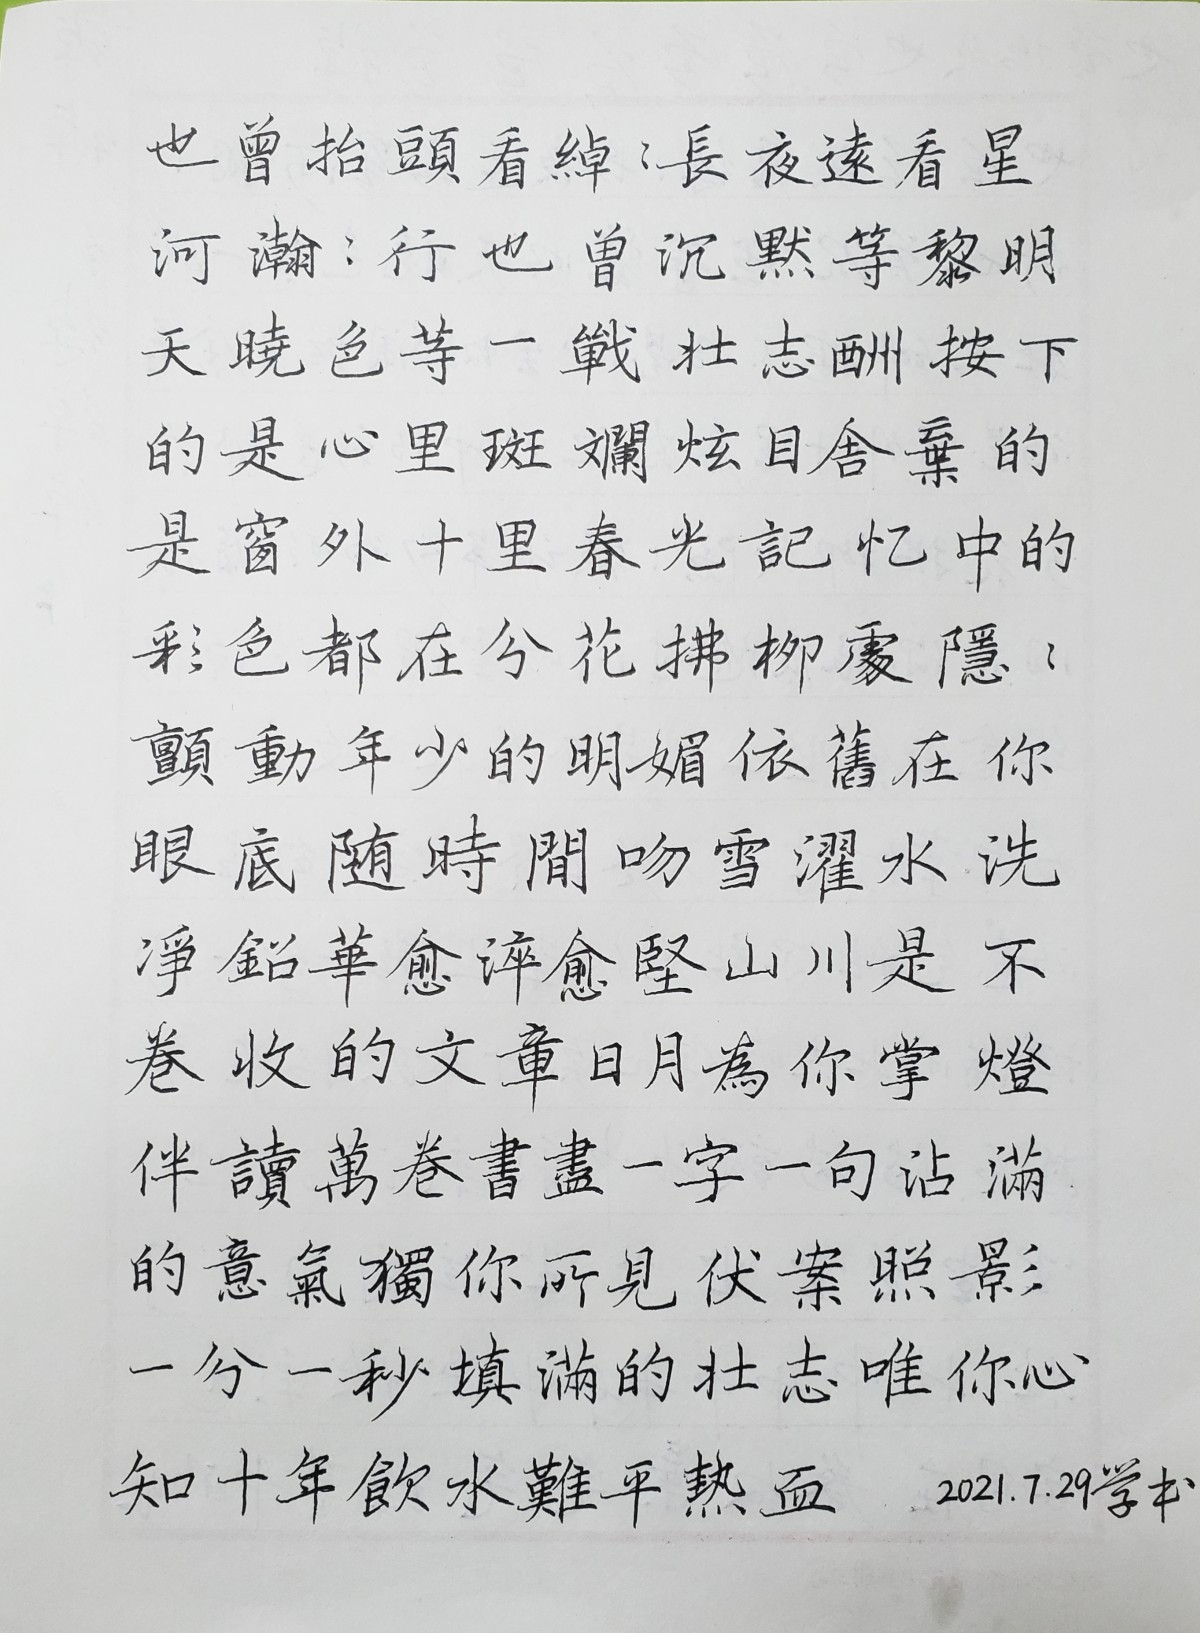 也曾抬頭看綽〻長夜遠看星
河瀚〻行也曾沉默等黎明
天曉色等一戰壯志酬按下
的是心里斑斕炫目舍棄的
是窗外十里春光記忆中的
彩色都在分花拂柳處隱〻
顫動年少的明媚依舊在你
眼底随時間吻雪濯水洗
淨鉛華愈淬愈堅山川是不
卷收的文章日月為你掌燈
伴讀萬卷書盡一字一句沾滿
的意氣獨你所見伏案照影
一分一秒填滿的壯志唯你心
知十年飲水難平熱血 2021.7.29学书